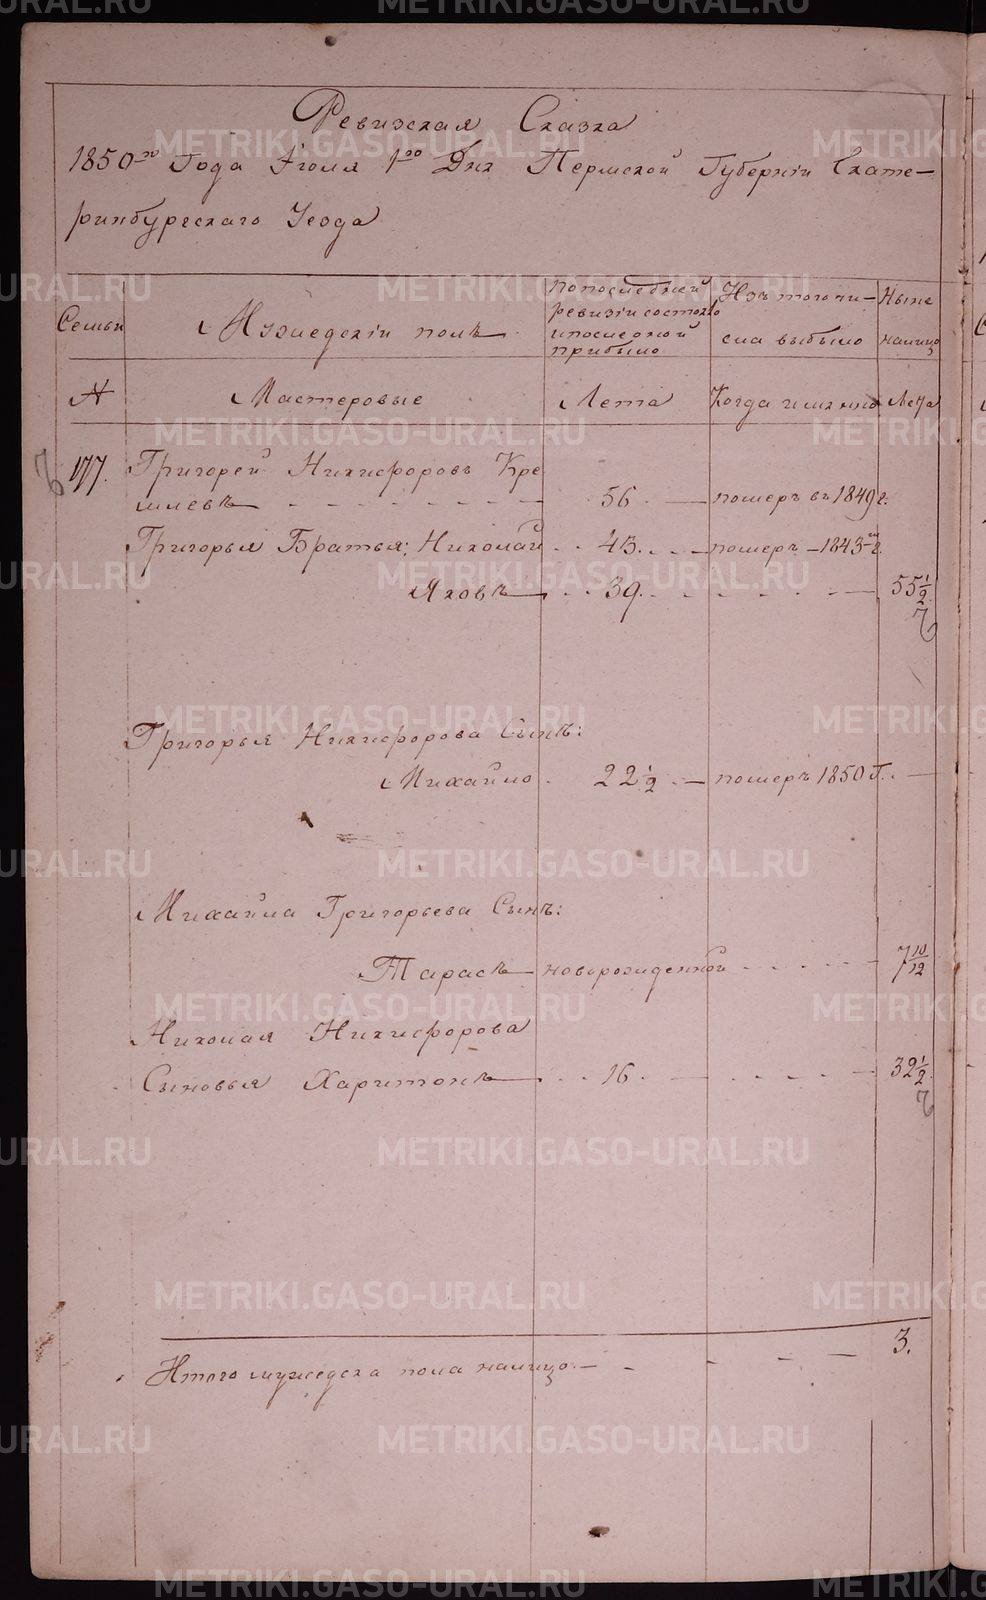 Ревизская Сказка
1850-го Года Июля 1го Дня Пермской Губернiи Екате-
ринбургскаго Уезда
Семьи
Мужескiй полъ
по последней
ревизiи состояло
и после оной
прибыло
Изъ того чи-
сла выбыло
Ныне
налицо
№
Мастеровые
Лета
Когда именно
Лета
177.
Григорей Никифоровъ Кре
шлевъ 56. померъ въ 1849 г.
Григорья Братья: Николай 43. померъ 1843 г.
Яковъ 39. 55 1/2
Григорья Никифорова Сынъ:
Михайло 22 1/2 померъ 1850 г.
Михайла Григорьева Сынъ:
Тарасъ новорожденной 7 10/12
Николая Никифорова
Сыновья Харитонъ 16. 32 1/2
3.
Итого мужеска пола налицо
METRIKI.GASO-URAL.RU